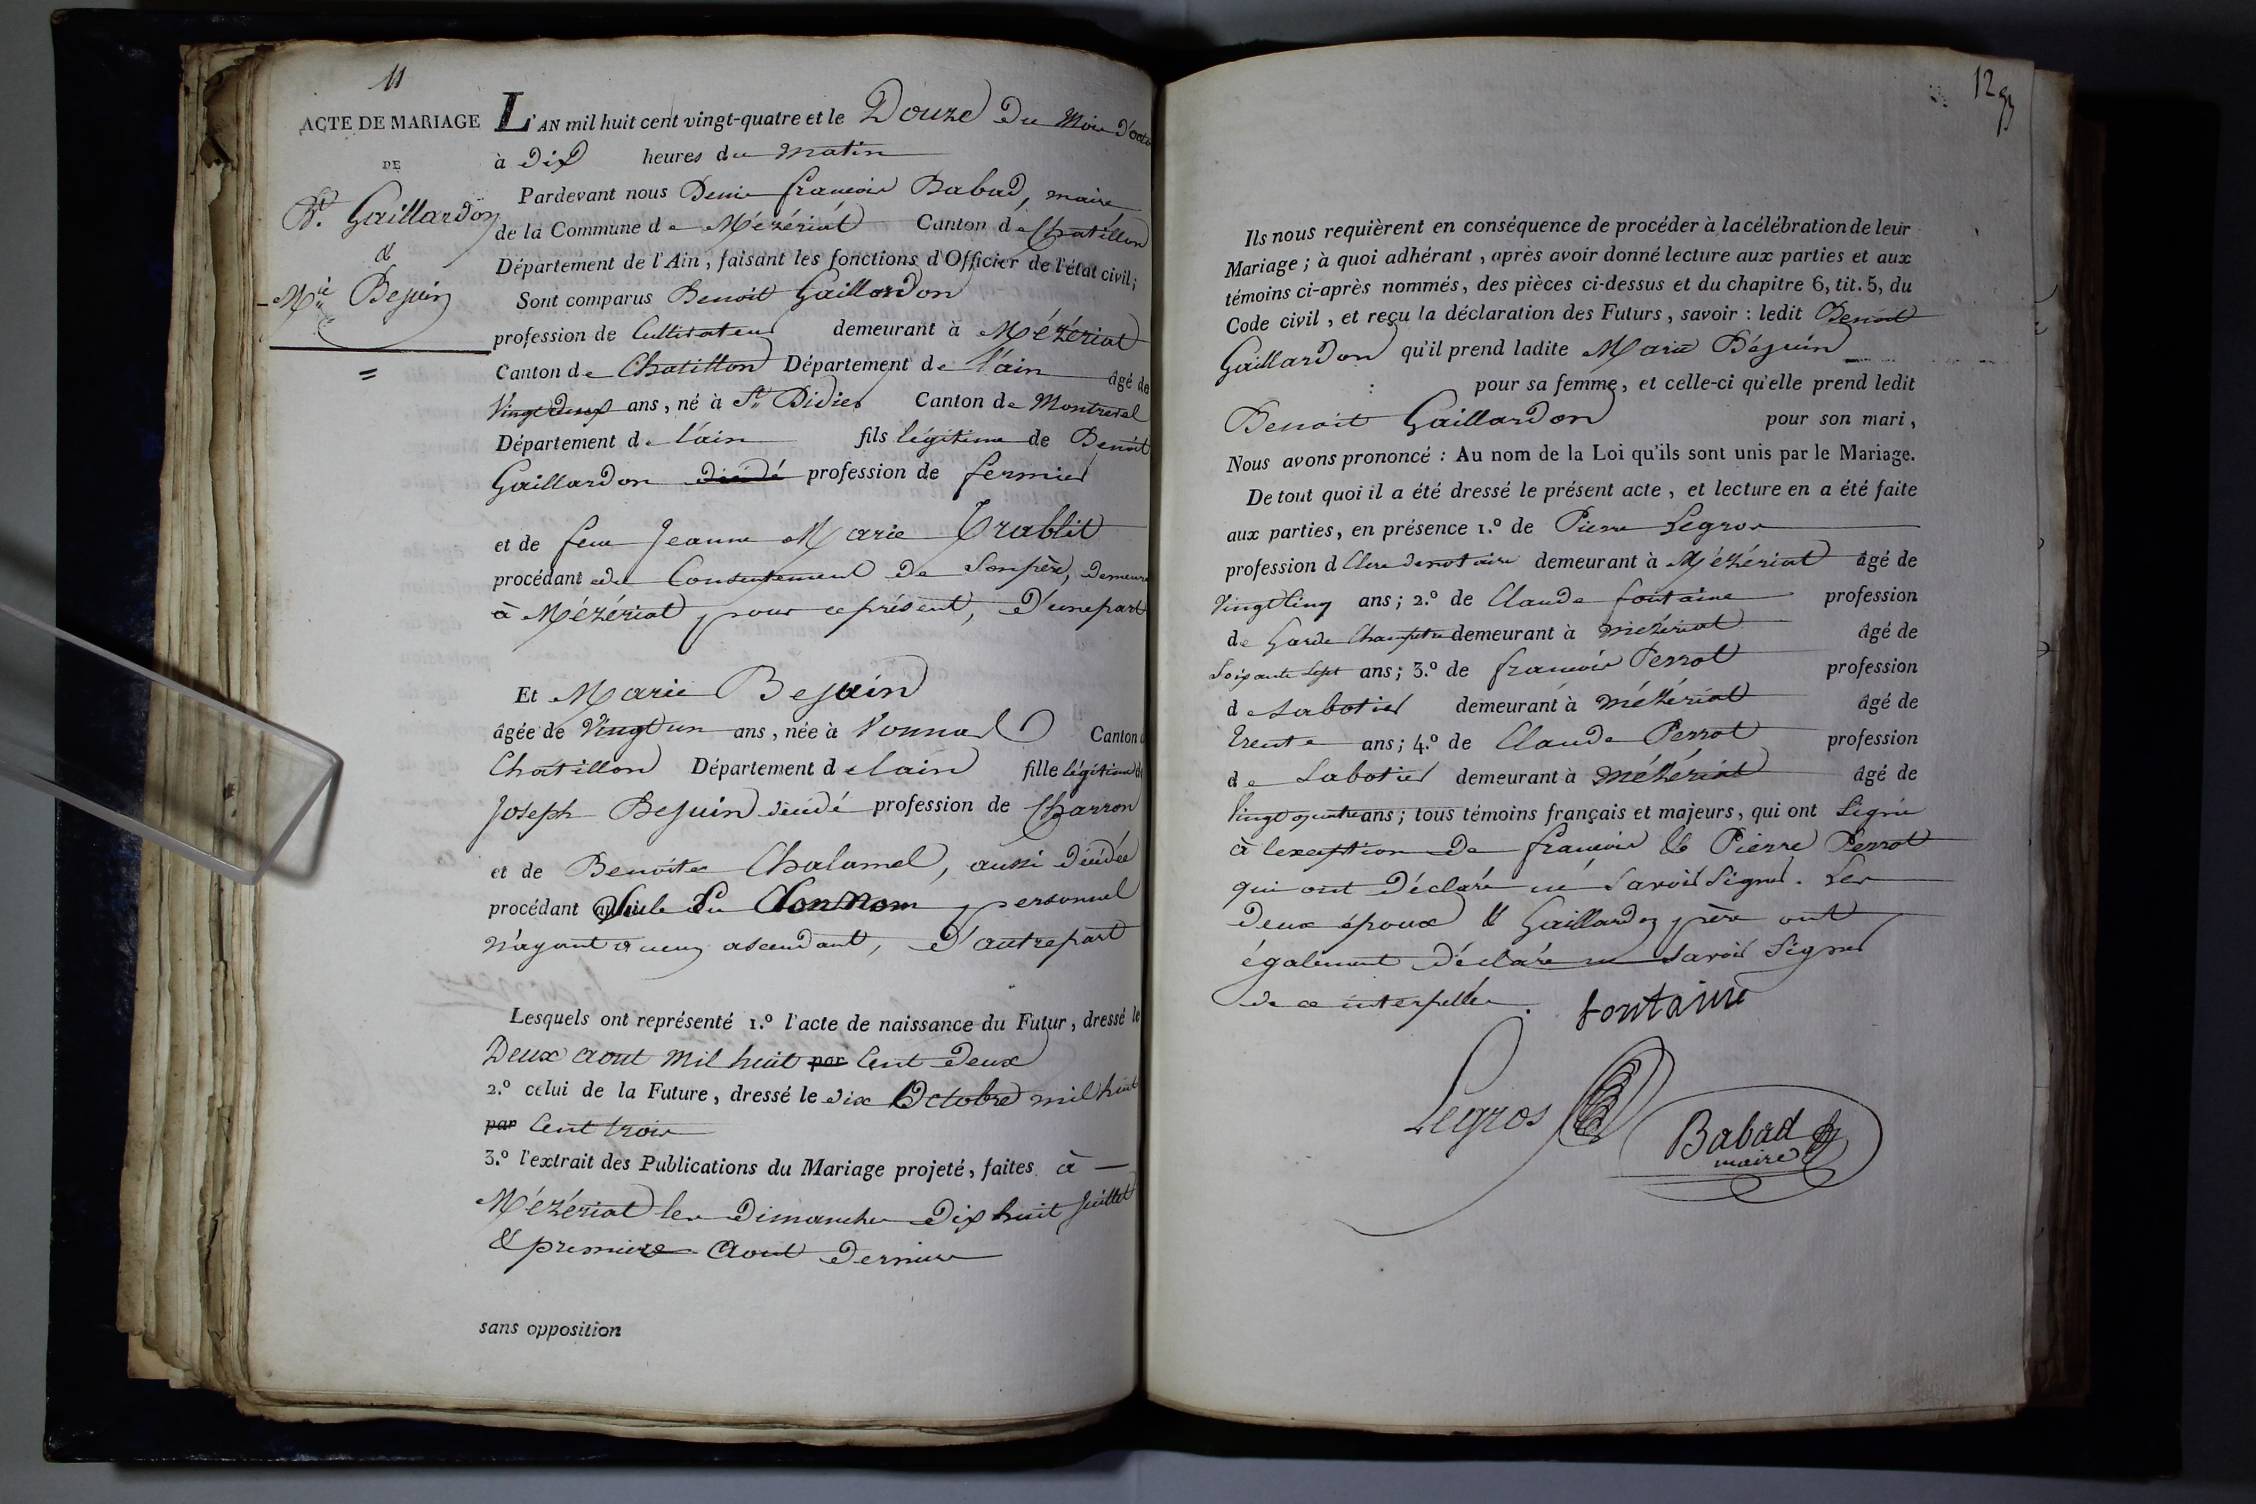 11
ACTE DE MARIAGE
DE
Bt. Gaillardon
&
Mie Bejuin
=
L'AN mil huit cent vingt-quatre et le Douze du Mois d'octo
à dix heures du matin
Pardevant nous Denis françois Babad, maire
de la Commune de Mézériat Canton de Chatillon
Département de l'Ain, faisant les fonctions d'Officier de l'état civil;
Sont comparus Benoit Gaillardon
profession de Cultivateur demeurant à Mézériat
Canton de Chatillon Département de l'ain âgé de
Vingt deux ans, né à St Didier Canton de Montrevel
Département de l'ain fils légitime de Benoit
Gaillardon décédé profession de fermier
et de feue Jeanne Marie Trablit
procédant du Consentement de Son père, demeura
à Mézériat, pour ce présent, D'une part
Et Marie Bejuin
âgée de Vingt un ans, née à Vonnas Canton d
Chatillon Département de lain fille légitime de
Joseph Bejuin décédé profession de Charron
et de Benoite Chalamel, aussi décédée
procédant Seule En Son Nom personnel
n'ayant aucun ascendant, D'autre part
Lesquels ont représenté 1.º l'acte de naissance du Futur, dressé le
Deux aout mil huit par Cent deux
2.º celui de la Future, dressé le dix Octobre mil huit
par Cent trois
3.º l'extrait des Publications du Mariage projeté, faites à
Mézériat les Dimanches Dix huit Juillet
& premier Aout derniers
sans opposition
12
Ils nous requièrent en conséquence de procéder à la célébration de leur
Mariage; à quoi adhérant, après avoir donné lecture aux parties et aux
témoins ci-après nommés, des pièces ci-dessus et du chapitre 6, tit. 5, du
Code civil, et reçu la déclaration des Futurs, savoir: ledit Benoit
Gaillardon qu'il prend ladite Marie Béjuin
pour sa femme, et celle-ci qu'elle prend ledit
Benoit Gaillardon pour son mari,
Nous avons prononcé: Au nom de la Loi qu'ils sont unis par le Mariage.
De tout quoi il a été dressé le présent acte, et lecture en a été faite
aux parties, en présence 1.º de Pierre Legros
profession d Clerc de notaire demeurant à Mézériat âgé de
Vingt Cinq ans; 2.º de Claude fontaine profession
de Garde Champetre demeurant à mézériat âgé de
Soixante Sept ans; 3.º de françois Perrot profession
de Sabotier demeurant à mézériat âgé de
trente ans; 4.º de Claude Perrot profession
de Sabotier demeurant à mézériat âgé de
Vingt quatre ans; tous témoins français et majeurs, qui ont Signé
à l'exception de françois & Pierre Perrot
qui ont Déclaré ne Savoir Signer. Les
deux époux & Gaillardon père ont
également déclaré ne Savoir Signer
de ce interpellés.
fontaine
Legros
Babad
maire